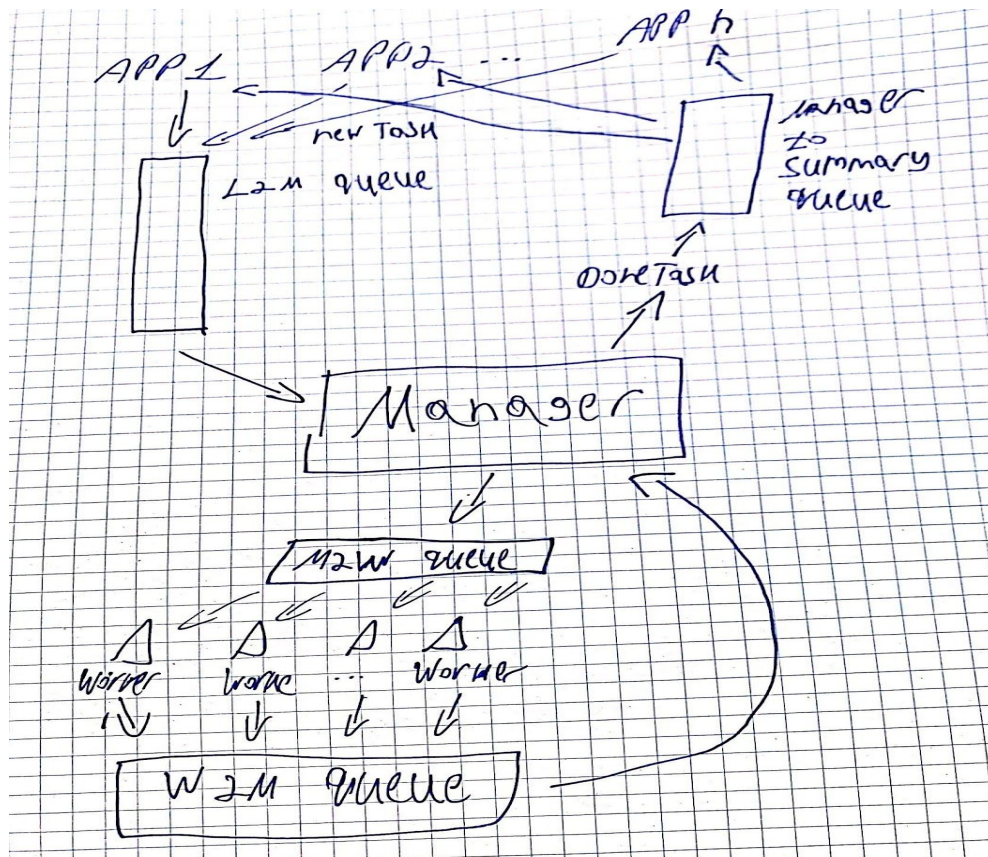 APP 1
APP2 ...
APP n
new Task
L2M queue
Manager
to
summary
queue
Done Task
Manager
M2W queue
Worker
Worke
...
Worker
W2M queue